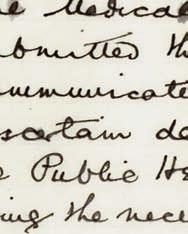 e Medical
bmitted th
ommunicate
scertain de
e Public He
ing the nece